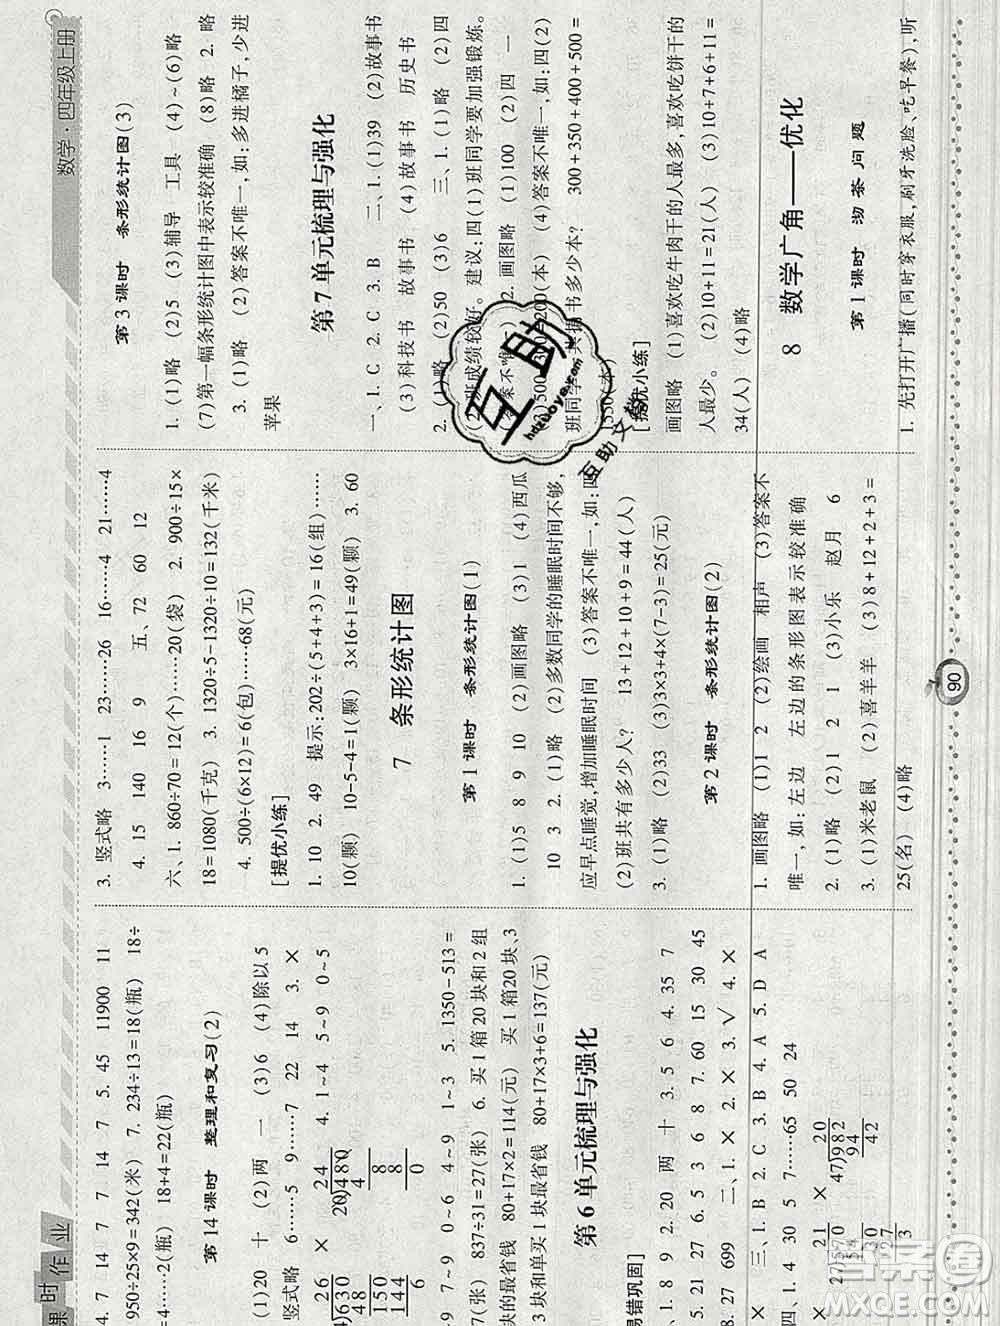 课时作业
数学·四年级上册
4. 7 14 7 7 14 7 5. 45 11900 11
950÷25×9=342(米) 7. 234÷13=18(瓶) 18÷
4=……2(瓶) 18+4=22(瓶)
第14课时 整理和复习(2)
(1)20 十 (2)两 一 (3)6 (4)除以5
竖式略 6……5 9……7 22 14 3. ×
26 × 24 4. 1~4 5~9 0~5
630 20 480
48 4
150 8
144 8
6 0
9 7~9 0~6 4~9 1~3 5. 1350-513=
7(张) 837÷31=27(张) 6. 买1箱20块和2组
块的最省钱 80+17×2=114(元) 买1箱20块、3
3块和单买1块最省钱 80+17×3+6=137(元)
第6单元梳理与强化
易错巩固]
1. 8 9 2. 20 两 十 3. 5 6 4. 35 7
5. 21 27 6. 5 3 6 8 7. 60 15 30 45
8. 27 699 二、1. × 2. × 3. √ 4. ×
× 三、1. B 2. C 3. B 4. A 5. D A
四、1. 4 30 5 7……65 50 24
× 21 × 20
27 570 47 982
54 94
30 42
27
3
3. 竖式略 3……1 23……26 16……4 21……4
4. 15 140 16 9 五、72 60 12
六、1. 860÷70=12(个)……20(袋) 2. 900÷15×
18=1080(千克) 3. 1320÷5-1320÷10=132(千米)
4. 500÷(6×12)=6(包)……68(元)
[提优小练]
1. 10 2. 49 提示:202÷(5+4+3)=16(组)……
10(颗) 10-5-4=1(颗) 3×16+1=49(颗) 3. 60
7 条形统计图
第1课时 条形统计图(1)
1. (1)5 8 9 10 (2)画图略 (3)1 (4)西瓜
10 3 2. (1)略 (2)多数同学的睡眠时间不够,
应早点睡觉,增加睡眠时间 (3)答案不唯一,如:四
(2)班共有多少人? 13+12+10+9=44(人)
3. (1)略 (2)33 (3)3×3+4×(7-3)=25(元)
第2课时 条形统计图(2)
1. 画图略 (1)1 2 (2)绘画 相声 (3)答案不
唯一,如:左边 左边的条形图表示较准确
2. (1)略 (2)1 2 1 (3)小乐 赵月 6
3. (1)米老鼠 (2)喜羊羊 (3)8+12+2+3=
25(名) (4)略
第3课时 条形统计图(3)
1. (1)略 (2)5 (3)辅导 工具 (4)~(6)略
(7)第一幅条形统计图中表示较准确 (8)略 2. 略
3. (1)略 (2)答案不唯一,如:多进橘子,少进
苹果
第7单元梳理与强化
一、1. C 2. C 3. B 二、1. (1)39 (2)故事书
(3)科技书 故事书 (4)故事书 历史书
2. (1)略 (2)50 (3)6 三、1. (1)略 (2)四
班成绩较好。建议:四(1)班同学要加强锻炼。
(答案不唯一) 2. 画图略 (1)100 (2)四 一
200(本) (4)答案不唯一,如:四(2)
班同学一共捐书多少本? 300+350+400+500=
1550(本)
[提优小练]
画图略 (1)喜欢吃牛肉干的人最多,喜欢吃饼干的
人最少。 (2)10+11=21(人) (3)10+7+6+11=
34(人) (4)略
8 数学广角——优化
第1课时 沏茶问题
1. 先打开广播(同时穿衣服,刷牙洗脸、吃早餐),听
90
互助
hdzuoye.com
互助文
答案圈
MXQE.COM